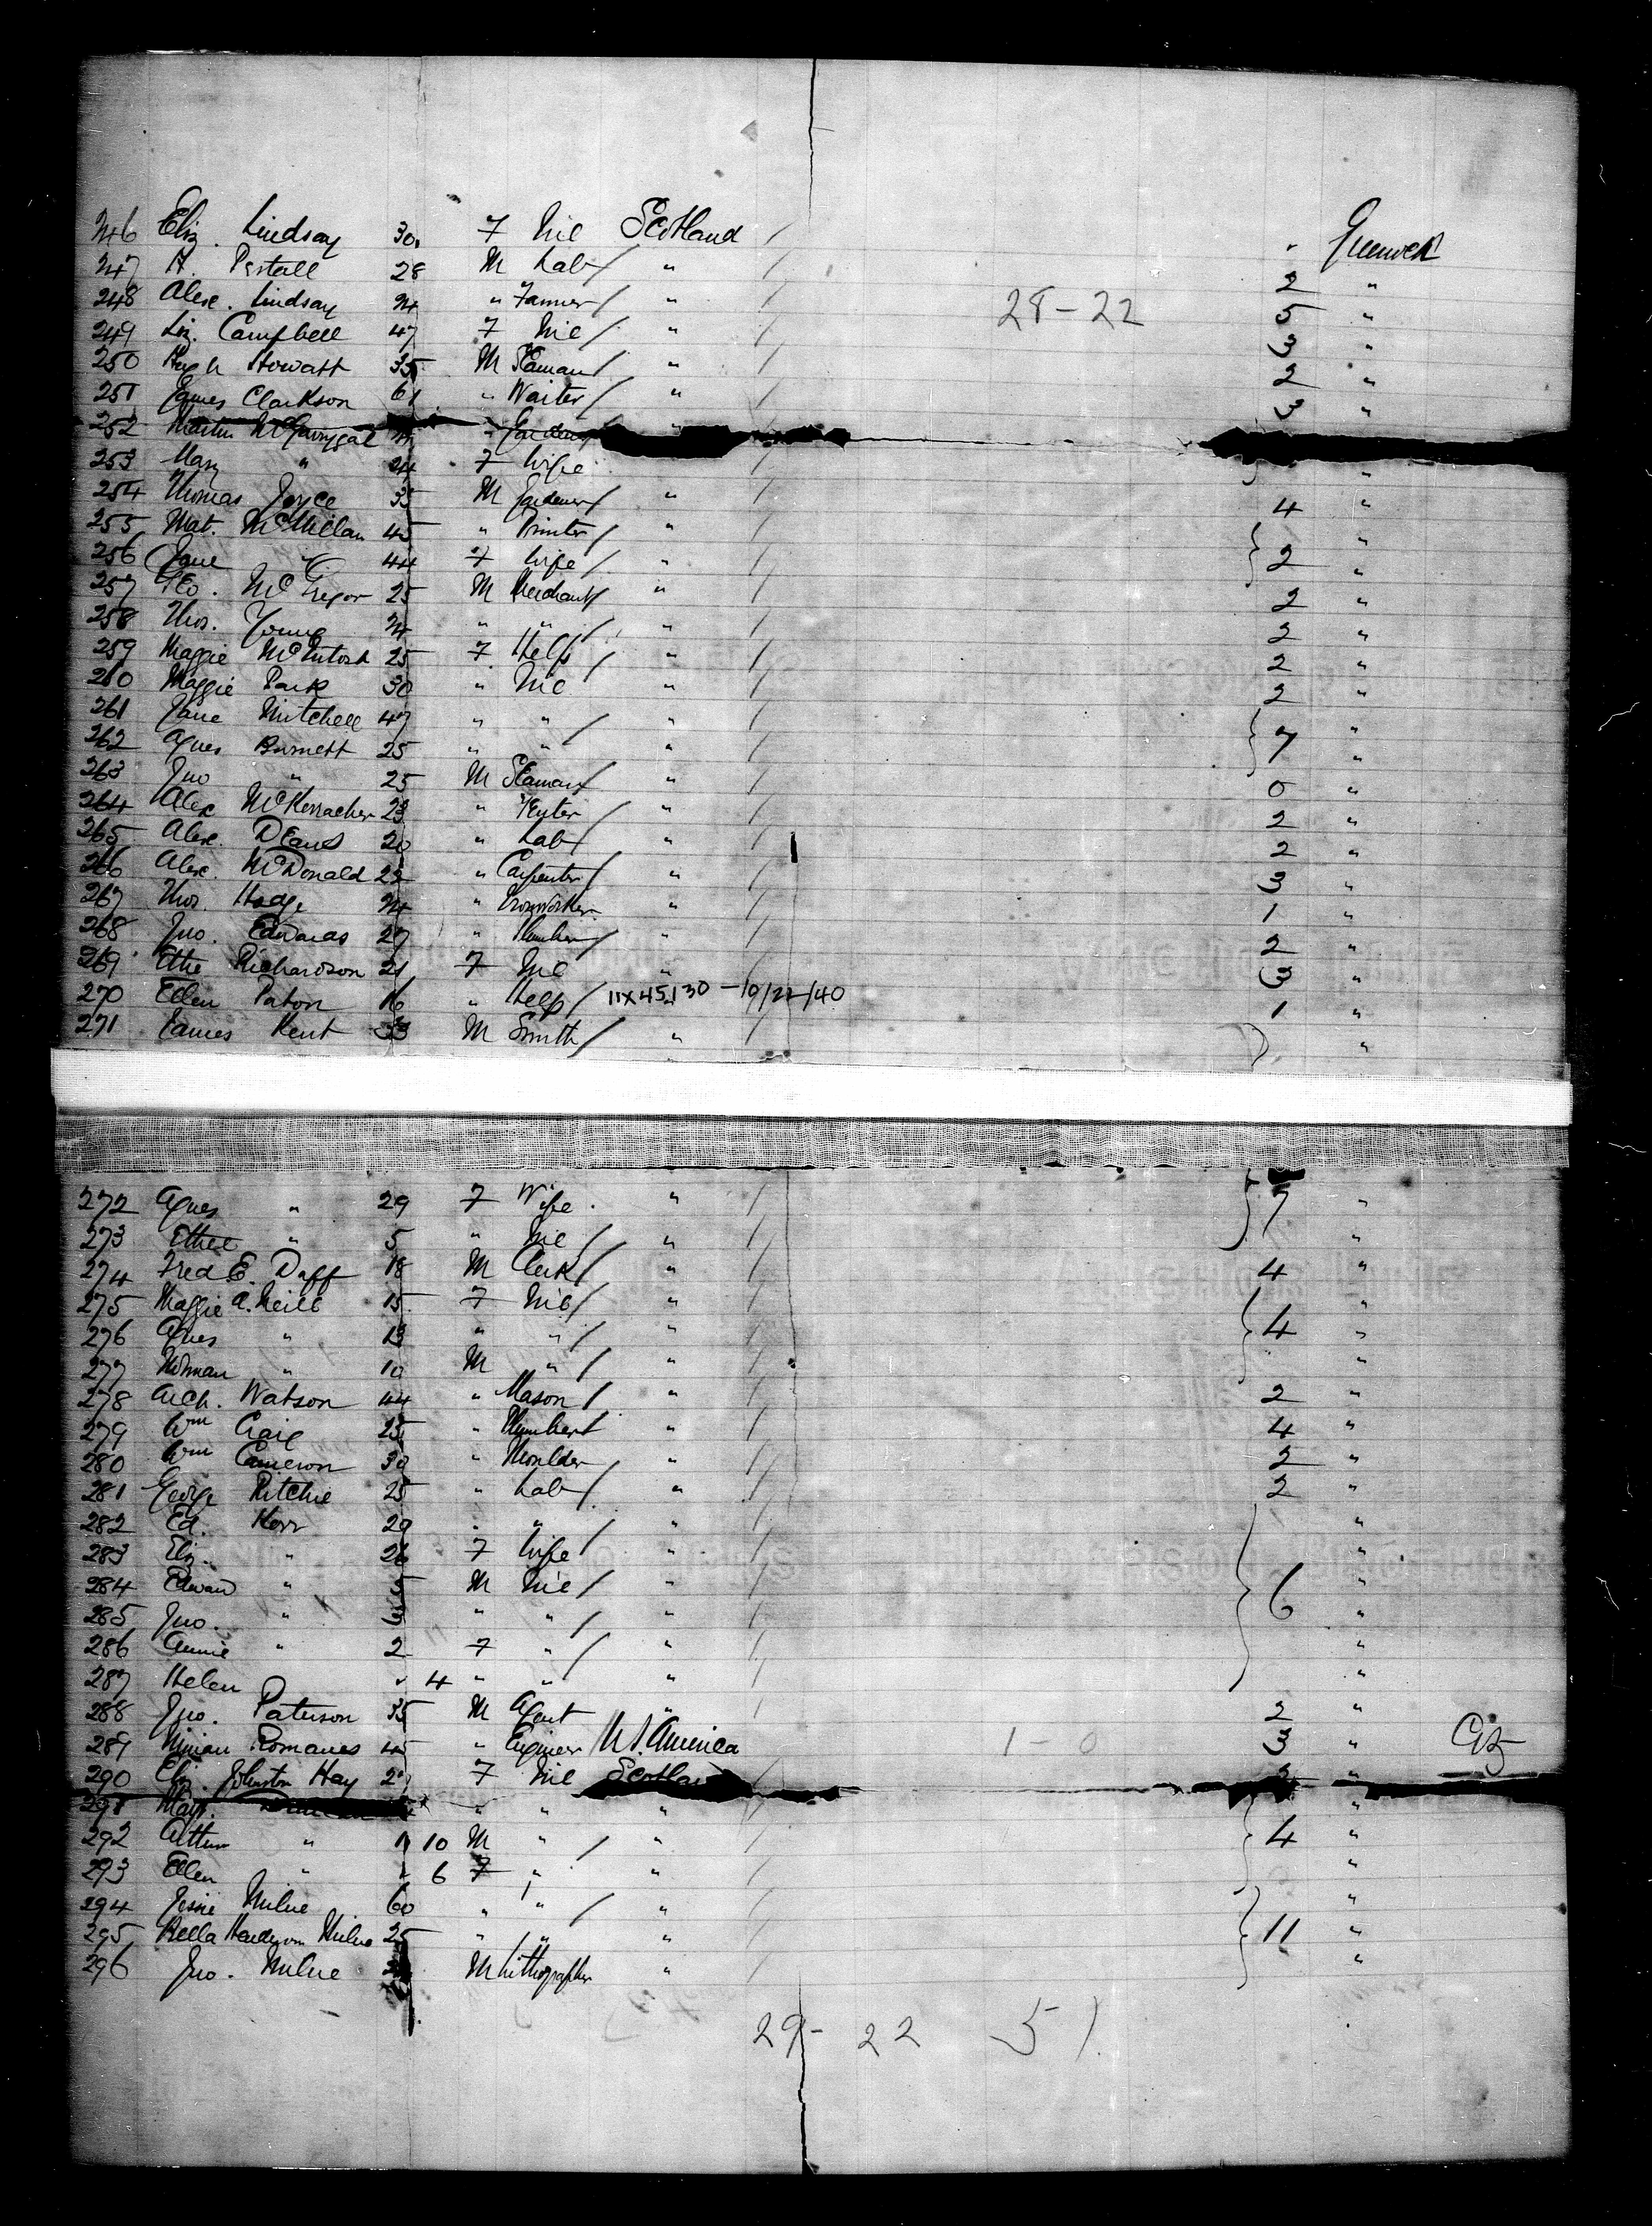 246 Eliz. Lindsay 30 7 Nil Scotland / " Greenock
247 A. 28 M Lab / " / 2 "
248 Alex. Lindsay 24 " Farmer / " / 28-22 5 "
249 Liz. Campbell 47 7 Nil / " / 3 "
250 Hugh Howatt 35 M Seaman / " / 2 "
251 James Clarkson 61 " Waiter / " / 3 "
252 Martin " "
253 Mary " 24 7 Wife / "
254 Thomas Joyce 35 M Gardener / " / 4 "
255 Mat. McMillan 45 " Printer / " / "
256 Jane " 44 7 Wife / " / 2 "
257 Geo. McGregor 25 M Merchant / " / 2 "
258 Thos. Young 24 " " / " / 2 "
259 Maggie McIntosh 25 7 Help / " / 2 "
260 Maggie Park 30 " Nil " / 2 "
261 Jane Mitchell 47 " " / " / "
262 Agnes Burnett 25 " " " / 7 "
263 Jno " 25 M Seaman / " / 0 "
264 Alex McKerracher 23 " / " / 2 "
265 Alex. Deans 20 " Lab / " / 2 "
266 Alex. McDonald 22 " Carpenter / " / 3 "
267 Thos. Hodge 24 " Ironworker " / 1 "
268 Jno. Edwards 27 " Plumber / " / 2 "
269 Ethe Richardson 21 7 Nil " / 3 "
270 Ellen Paton 16 " Help / 11X45130-10/22/40 1 "
271 James Kent 33 M Smith / " / "
272 Agnes " 29 7 Wife " / 7 "
273 Ethel " 5 " Nil / " / "
274 Fred E. Duff 18 M Clerk / " / 4 "
275 Maggie A. Neill 15 7 Nil / " / "
276 Agnes " 13 " " / " / 4 "
277 Norman " 10 M " / " / "
278 Arch. Watson 44 " Mason / " / 2 "
279 Wm Craig 25 " Plumber / " / 4 "
280 Wm Cameron 30 " Moulder / " / 2 "
281 George Ritchie 25 " Lab / " / 2 "
282 Ed. Kerr 29 " " / " / "
283 Eliz. " 26 7 Wife / " / "
284 Edward " 5 M Nil / " / "
285 Jno. " 3 " " / " / 6 "
286 Annie " 2 7 " / " / "
287 Helen " 4 " " " / "
288 Jno. Paterson 35 M Agent " / 2 "
289 Ninian Romanes 45 " Engineer / U.S. America 1-0 3 " Cz
290 Eliz. Johnston Hay 7 Nil Scotland / "
291 " " " / "
292 Arthur " 1 10 M " / " / 4 "
293 Ellen " 6 7 " " / "
294 Jessie Milne 60 " " / " / "
295 Bella Henderson Milne 25 " " " / 11 "
296 Jno. Milne M Lithographer " / "
29-22 51